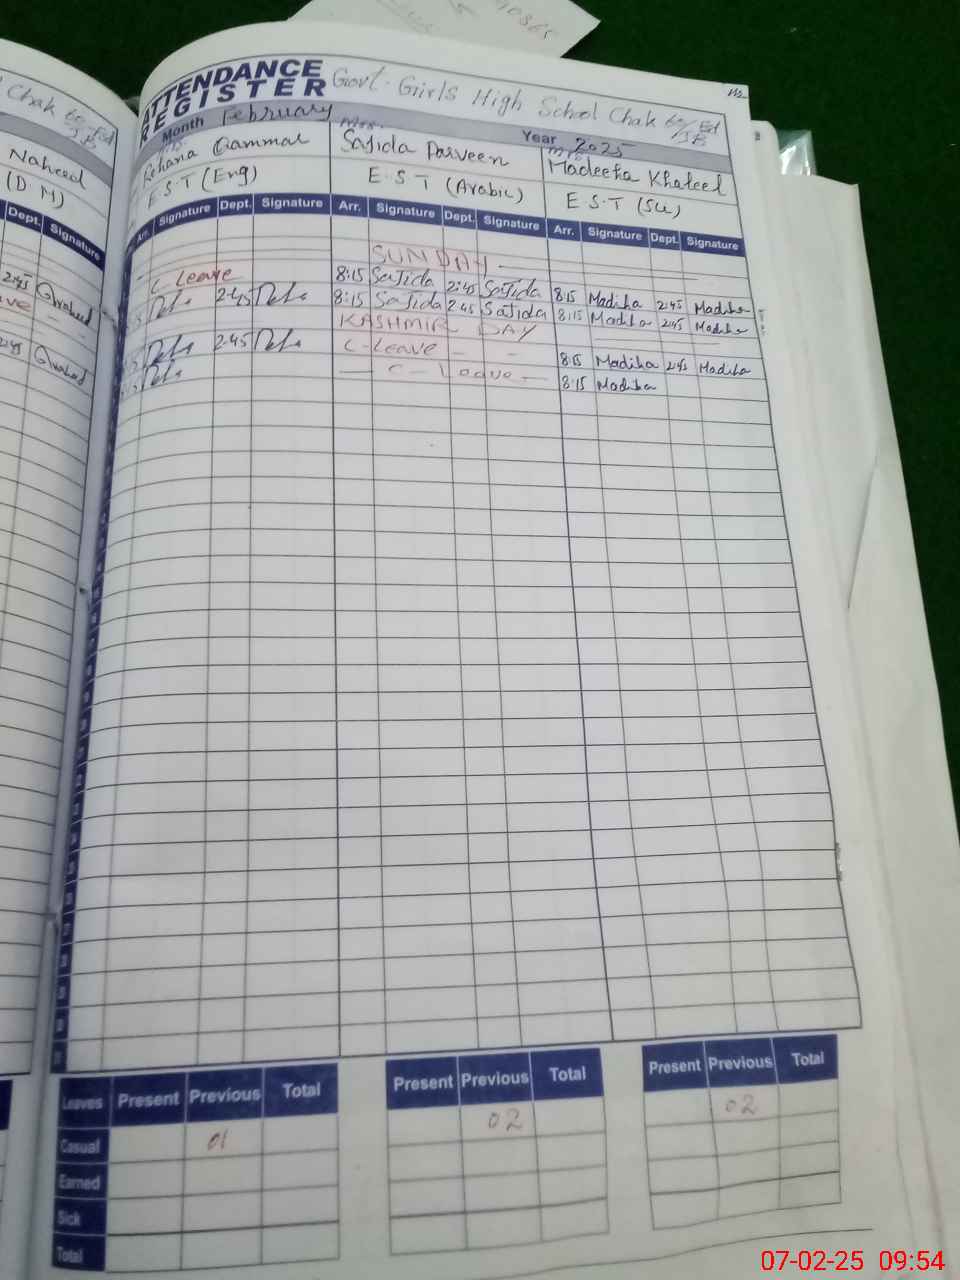 ATTENDANCE REGISTER
Govt. Girls High School Chak 60/JB Fd
Month February Year 2025
Chak 60 Fd
JB
Naheed
(D M)
Mrs. Rehana Qammar
E S T (Eng)
Mrs. Sajida Parveen
E.S T (Arabic)
Mrs. Madeeha Khaleel
E S.T (SE)
Dept. Signature
Arr. Signature Dept. Signature Arr. Signature Dept. Signature Arr. Signature Dept. Signature
SUNDAY
C Leave 8:15 Sajida 2:45 Sajida 8:15 Madiha 2:45 Madiha
2:45 8:15 Sajida 2:45 Sajida 8:15 Madiha 2:45 Madiha
KASHMIR DAY
2:45 C-Leave 8:15 Madiha 2:45 Madiha
C-Leave 8:15 Madiha
2:45
2:45
Leaves Present Previous Total Present Previous Total Present Previous Total
Casual 01 02 02
Earned
Sick
Total
07-02-25 09:54